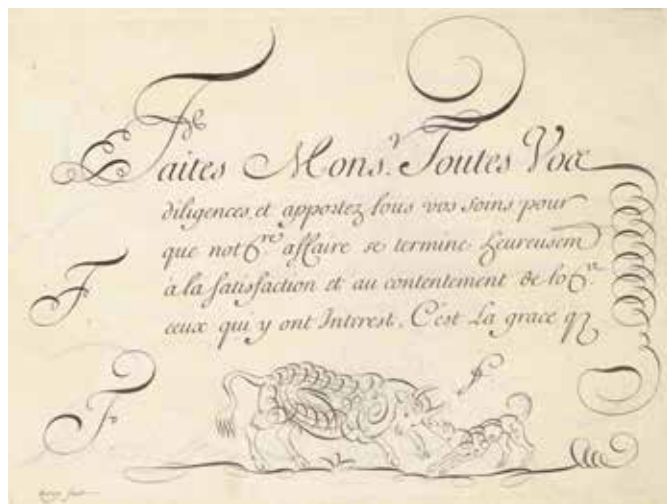 Faites Mons.r Toutes Voce
diligences, et apportez tous vos soins pour
que notre affaire se termine heureusem
a la satisfaction et au contentement de to
ceux qui y ont Interest. C'est La grace q
F
F
F